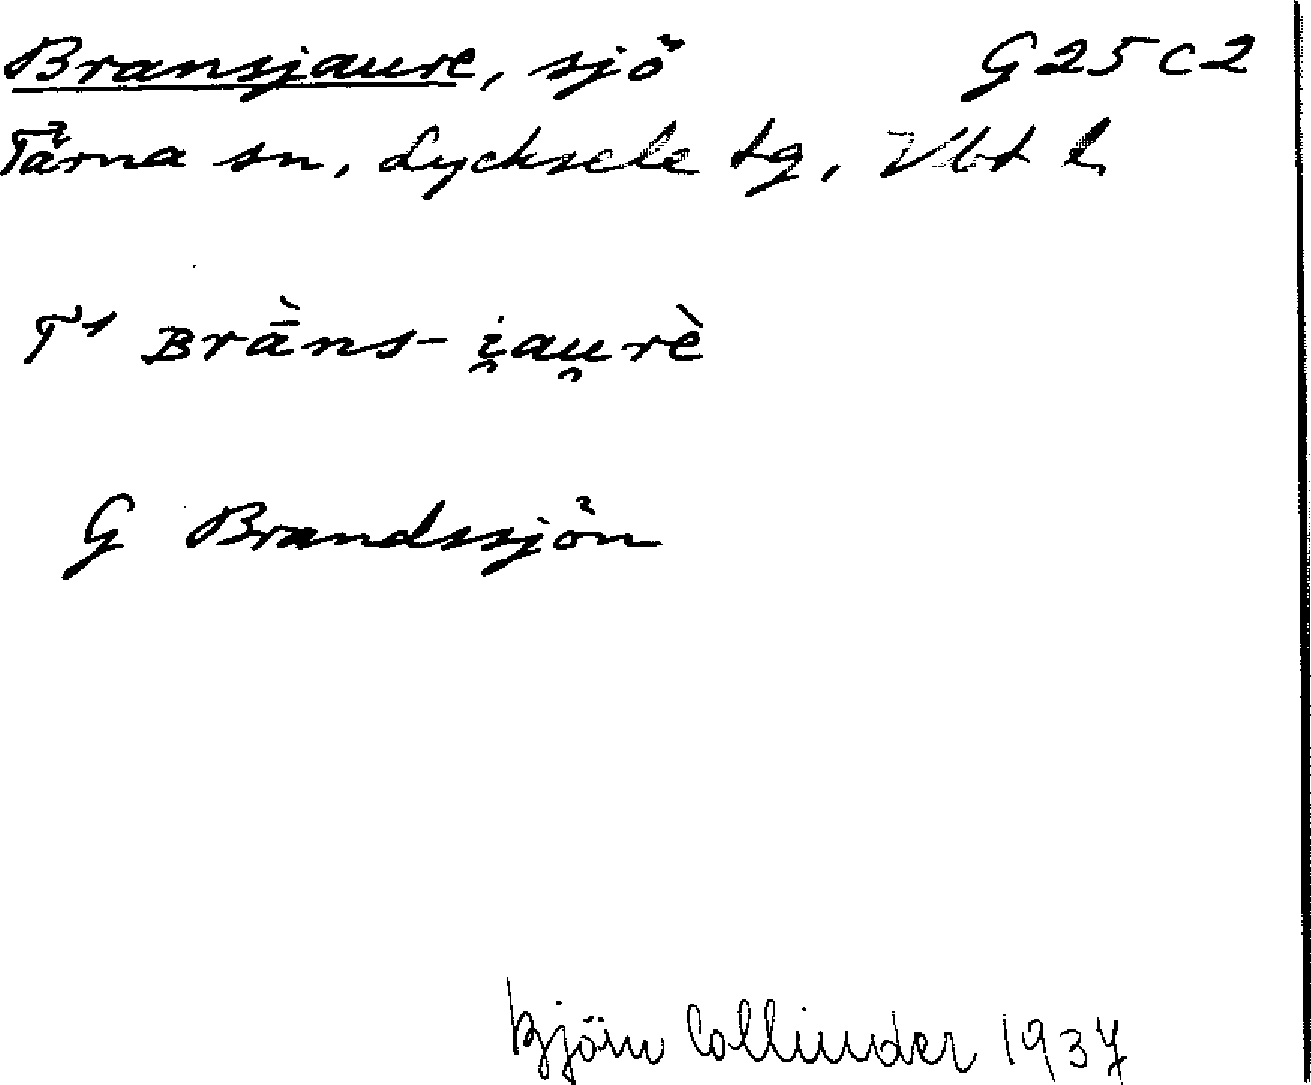 Bransjaure, sjö G25C2
Tärna sn, Lycksele tg, Vbt l
T¹ ʙrā̀ns-i̯au̯rè
G Brandssjön
Björn Collinder 1937